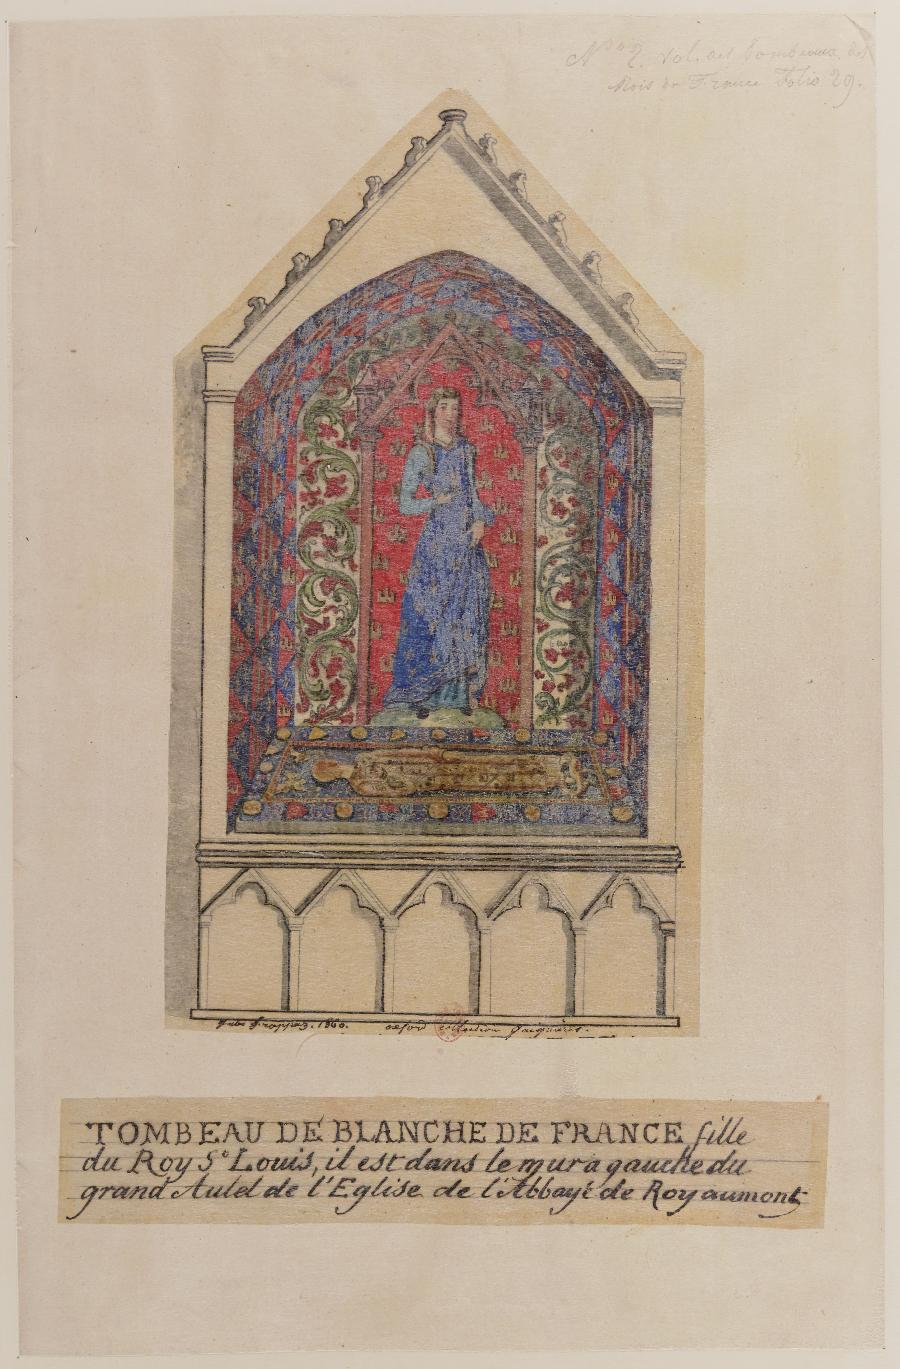 N° 2. Vol. des Tombeaux des
Rois de France Folio 29.
Jules Frappaz. 1860. oxford collection Gaignières.
TOMBEAU DE BLANCHE DE FRANCE fille
du Roy S^t Louis, il est dans le mur a gauche du
grand Autel de l'Eglise de l'Abbaye de Royaumont